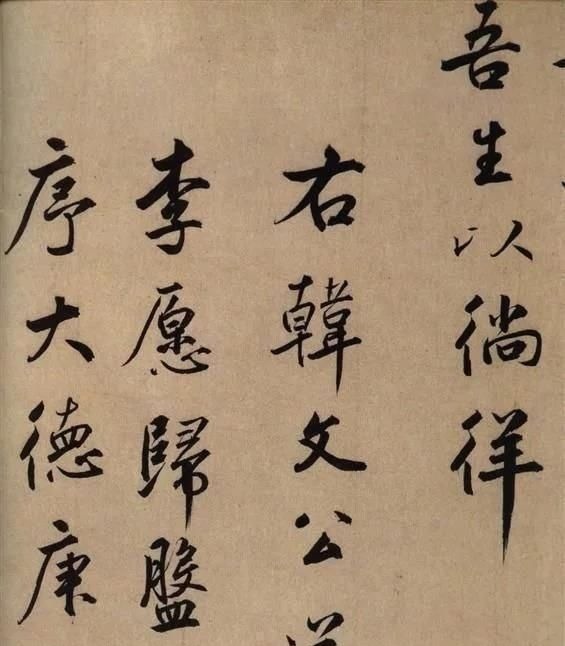 吾生以徜徉
右韓文公
李愿歸盤
序大德庚